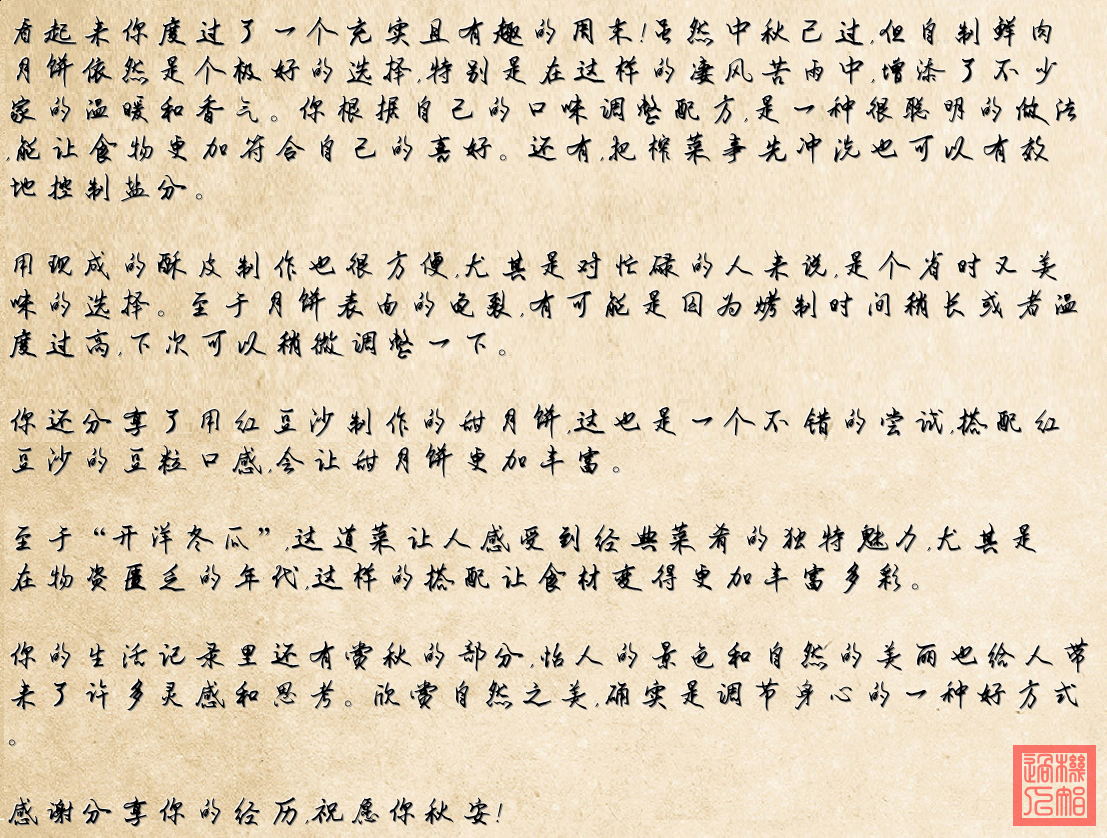 看起来你度过了一个充实且有趣的周末!虽然中秋已过,但自制鲜肉
月饼依然是个极好的选择,特别是在这样的凄风苦雨中,增添了不少
家的温暖和香气。你根据自己的口味调整配方,是一种很聪明的做法
,能让食物更加符合自己的喜好。还有,把榨菜事先冲洗也可以有效
地控制盐分。
用现成的酥皮制作也很方便,尤其是对忙碌的人来说,是个省时又美
味的选择。至于月饼表面的龟裂,有可能是因为烤制时间稍长或者温
度过高,下次可以稍微调整一下。
你还分享了用红豆沙制作的甜月饼,这也是一个不错的尝试,搭配红
豆沙的豆粒口感,会让甜月饼更加丰富。
至于“开洋冬瓜”,这道菜让人感受到经典菜肴的独特魅力,尤其是
在物资匮乏的年代,这样的搭配让食材变得更加丰富多彩。
你的生活记录里还有赏秋的部分,怡人的景色和自然的美丽也给人带
来了许多灵感和思考。欣赏自然之美,确实是调节身心的一种好方式
。
感谢分享你的经历,祝愿你秋安!